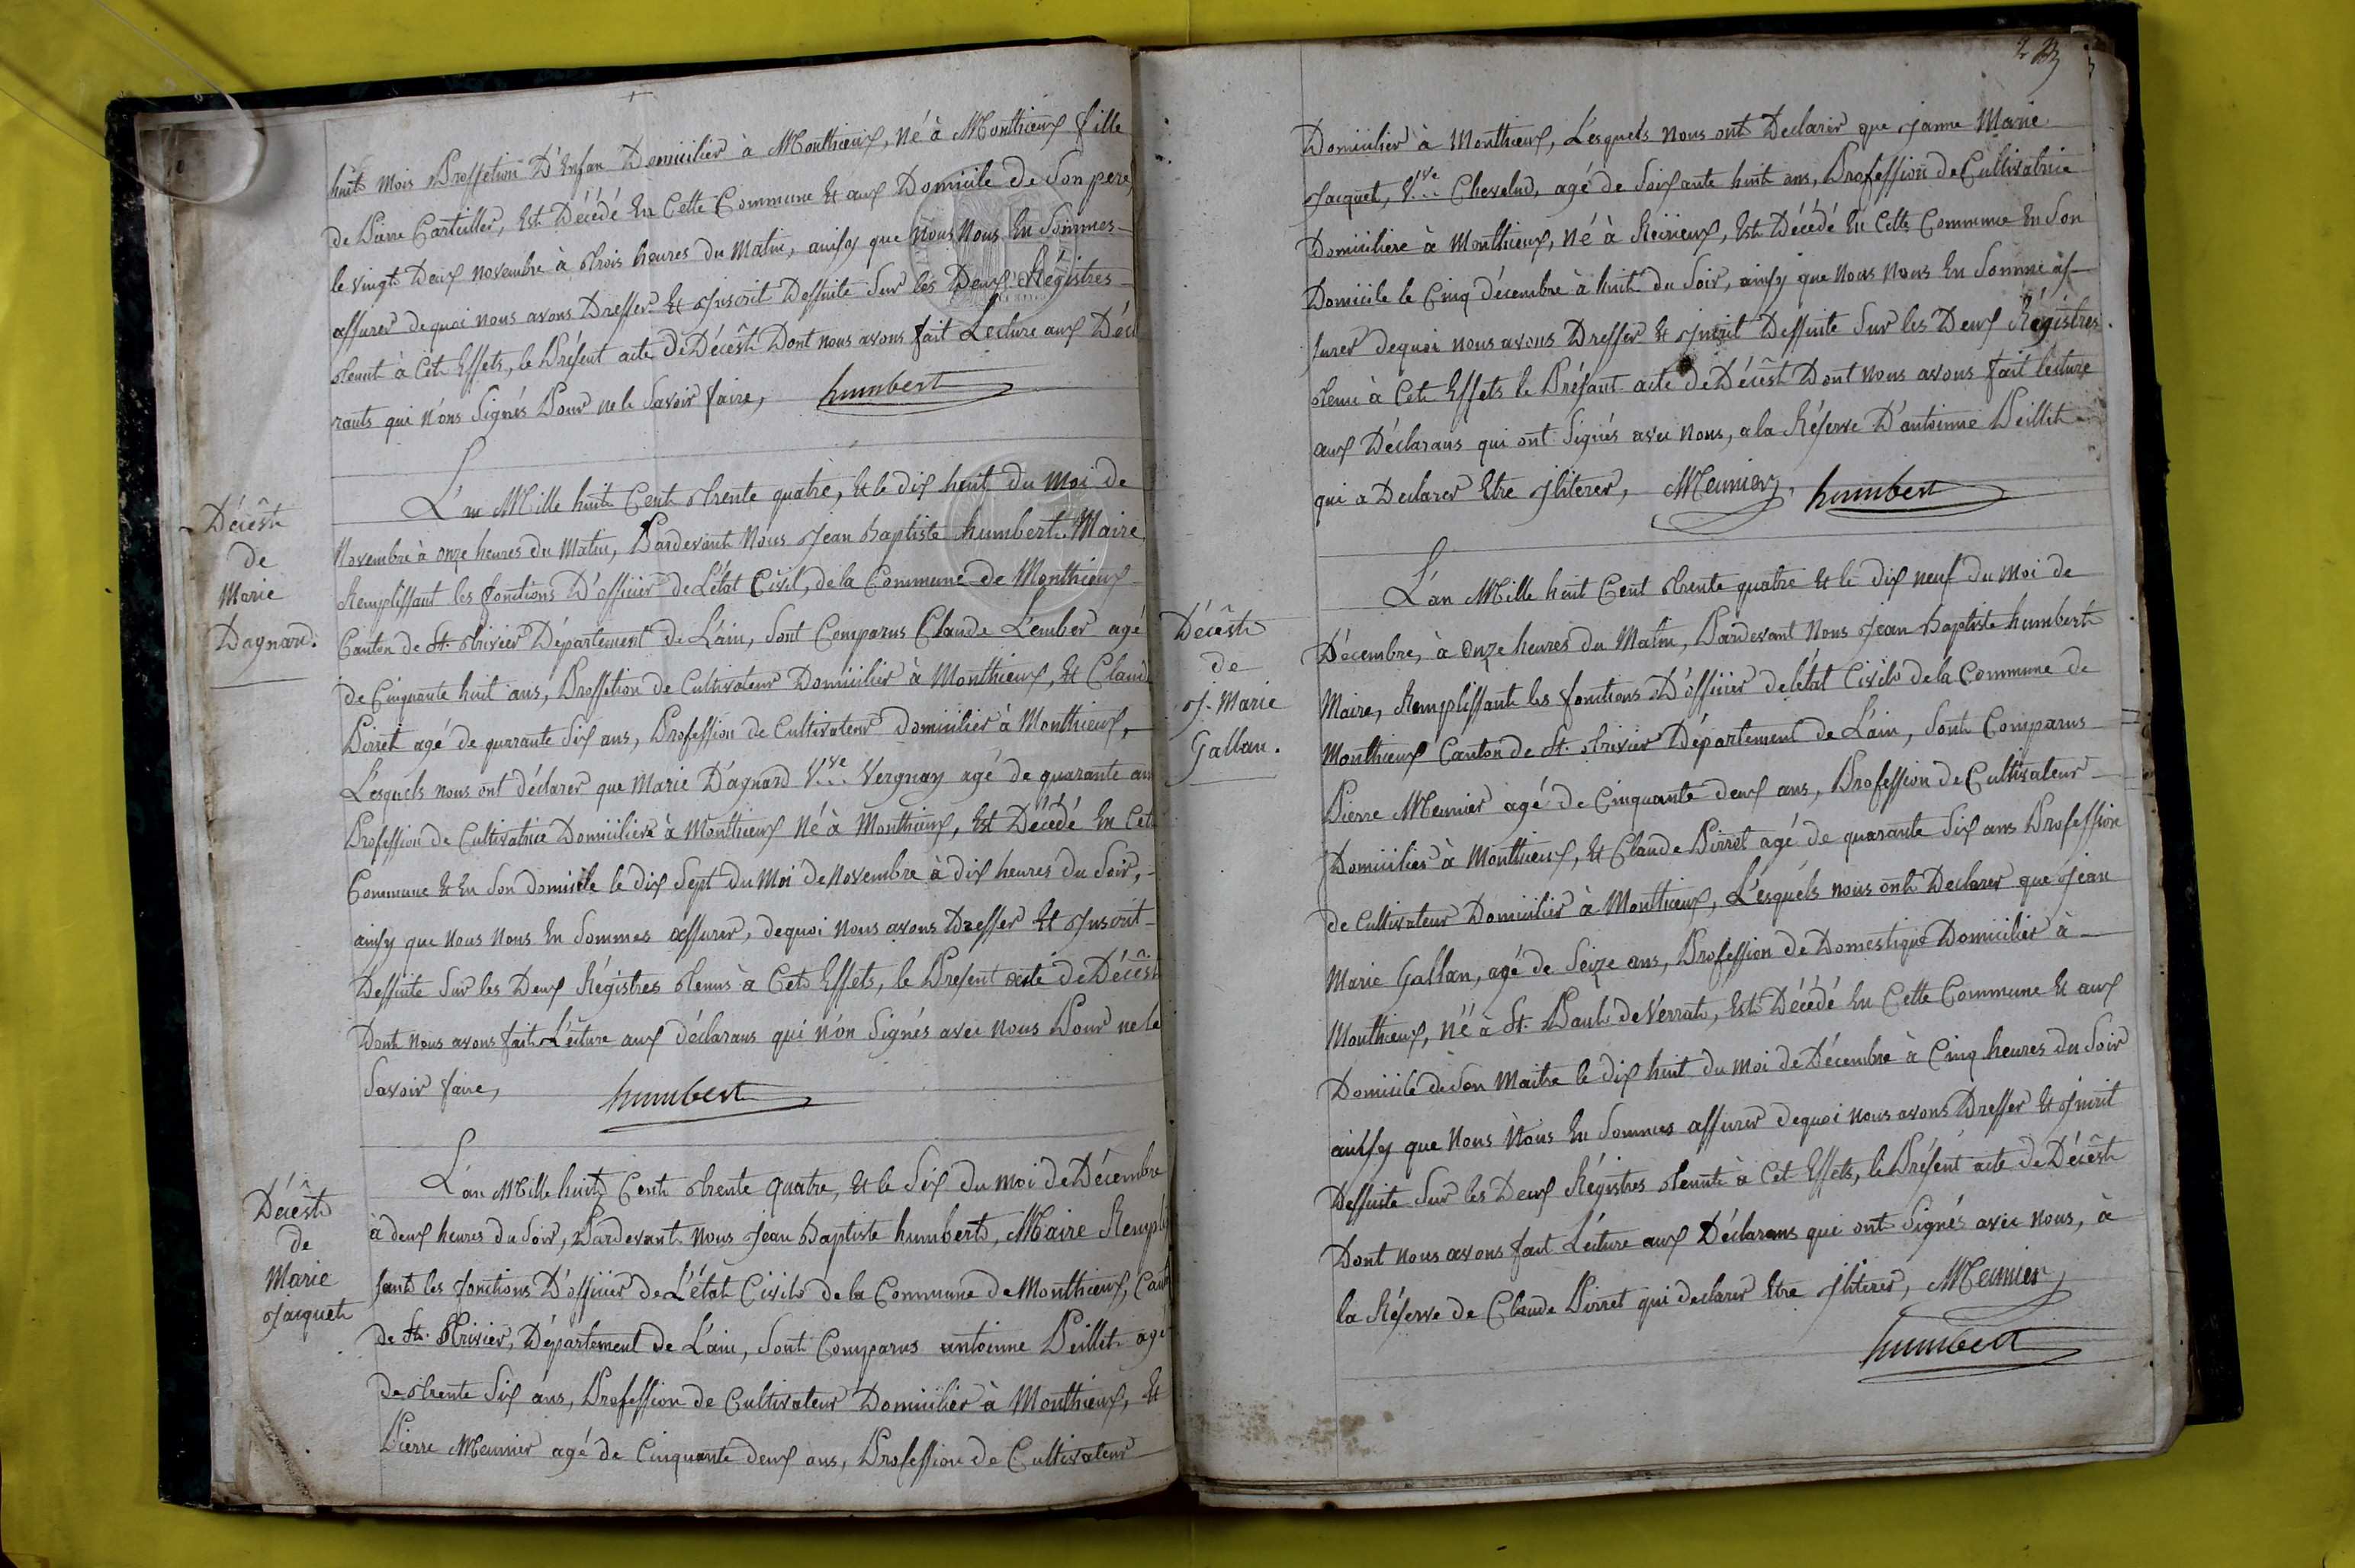 huit mois Proffetion D'enfan Domicilier à Monthieux, né à Monthieux fille
de Pierre Cartellier, Est Décédé En Cette Commune Et aux Domicile de Son pere,
le vingt Deux novembre à trois heures du Matin, ainsy que nous nous En Sommes
assurer dequoi nous avons Dresser Et Inscrit Dessuite Sur les Deux Régistres
tenut à Cet Effets, le Présent acte de Décèst Dont nous avons fait Lecture aux Décl
rants qui n'ons Signés Pour ne le Savoir faire, humbert
Décèst
de
Marie
Dagnard.
L'an Mille huit Cent trente quatre, Et le dix huit du moi de
Novembre à onze heures du Matin, Pardevant Nous Jean Baptiste humbert Maire
Remplissant les fonctions D'officier de L'état Civil, de la Commune de Monthieux
Canton de St. trivier Département de L'ain, Sont Comparus Claude L'ember agé
de Cinquante huit ans, Proffetion de Cultivateur Domicilier à Monthieux, Et Claud
Pirret agé de quarante Six ans, Profession de Cultivateur domicilier à Monthieux,
L'esquels nous ont déclarer que Marie D'agnard Vve Vergnay agé de quarante an
Profession de Cultivatrice Domiciliere à Monthieux Né à Monthieux, Est Décédé En Cet
Commune Et En Son domicile le dix Sept du Moi de Novembre à dix heures du Soir,
ainsy que nous nous En Sommes assurer, dequoi nous avons Dresser Et Inscrit
Dessuite Sur les Deux Régistres tenus à Cet Effets, le Présent acte de Décèst
Dont nous avons fait L'ecture aux déclarans qui n'on Signés avec nous Pour ne le
Savoir faire, humbert
Décèst
de
Marie
Jacquet
L'an Mille huit Cent trente quatre, Et le Six du moi de Décembre
à deux heures du Soir, Pardevant nous Jean Baptiste humbert, Maire Remplis
sant les fonctions D'officier de L'état Civil de la Commune de Monthieux, Cant
de St. Trivier, Département de L'ain, Sont Comparus antoinne Peillet agé
de trente Six ans, Profession de Cultivateur Domicilier à Monthieux, Et
Pierre Meunier agé de Cinquante deux ans, Profession de Cultivateur
Domicilier à Monthieux, L'esquels nous ont Declarer que Janne Marie
Jacquet, Vve Chevelud, agé de Soixante huit ans, Profession de Cultivatrice
Domiciliere à Monthieux, né à Reirieux, Est Décédé En Cette Commune En Son
Domicile le Cinq décembre à huit du Soir, ainsy que nous nous En Somme as
surer dequoi nous avons Dresser Et Inscrit Dessuite Sur les Deux Régistres
tenu à Cet Effets le Présant acte de Décèst Dont nous avons fait lecture
aux Déclarans qui ont Signés avec nous, a la Réserve D'antoinne Peillet
qui a Declarer Etre Iliterer, Meunier, humbert
Décèst
de
J. Marie
Gallan.
L'an Mille huit Cent trente quatre Et le dix neuf du Moi de
Décembre, à onze heures du Matin, Pardevant Nous Jean Baptiste humbert
Maire, Remplissant les fonctions D'officier de létat Civil de la Commune de
Monthieux Canton de St. trivier Département de L'ain, Sont Comparus
Pierre Meunier agé de Cinquante deux ans, Profession de Cultivateur
Domicilier à Monthieux, Et Claude Pirret agé de quarante Six ans Profession
de Cultivateur Domicilier à Monthieux, L'esquels nous ont Declarer que Jean
Marie Gallan, agé de Seize ans, Profession de Domestique Domicilier à
Monthieux, né à St. Paul de Verrat, Est Décédé En Cette Commune Et aux
Domicile de Son Maitre le dix huit du Moi de Décembre à Cinq heures du Soir
ainsy que Nous Nous En Sommes assurer dequoi nous avons Dresser Et Incrit
Dessuite Sur les Deux Régistres tenuts à Cet Effets, le Présent acte de Décèst
Dont nous avons fait L'ecture aux Déclarans qui ont Signés avec nous, à
la Réserve de Claude Pirret qui declarer Etre Iliterer, Meunier,
humbert